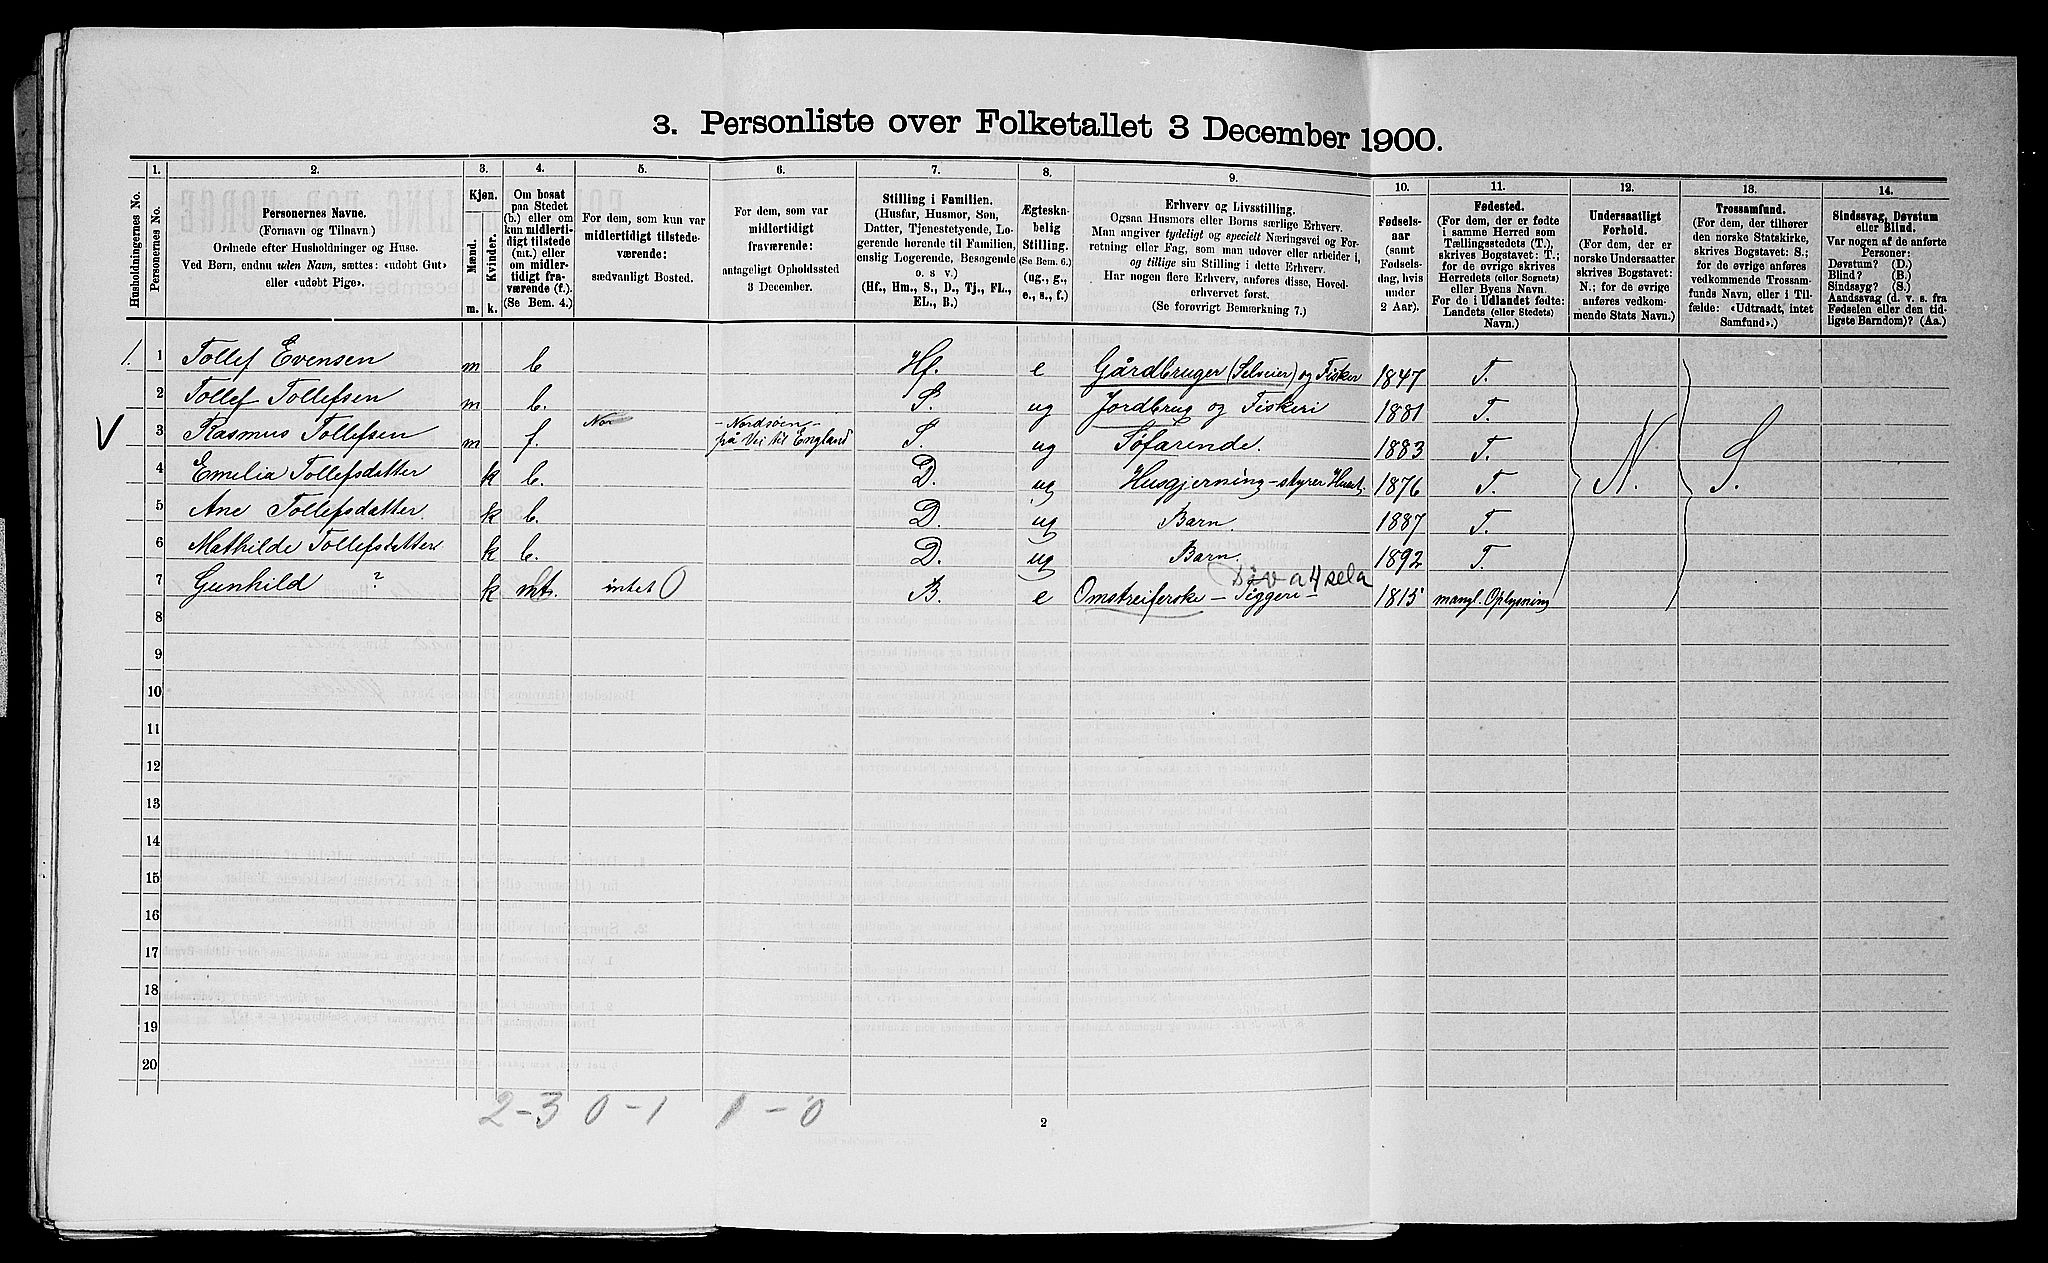 3. Personliste over Folketallet 3 December 1900.
Husholdningernes No.
1.
Personernes No.
2.
Personernes Navne.
(Fornavn og Tilnavn)
Ordnede efter Husholdninger og Huse.
Ved Børn, endnu uden Navn, sættes: «udøbt Gut»
eller «udøbt Pige».
3.
Kjøn.
Mænd.
Kvinder.
m. k.
4.
Om bosat
paa Stedet
(b.) eller om
kun midlerti-
digt tilstede
(mt.) eller
om midler-
tidigt fra-
værende (f.)
(Se Bem. 4.)
5.
For dem, som kun var
midlertidigt tilstede-
værende:
sædvanligt Bosted.
6.
For dem, som var
midlertidigt
fraværende:
antageligt Opholdssted
3 December.
7.
Stilling i Familien.
(Husfar, Husmor, Søn,
Datter, Tjenestetyende, Lo-
gerende hørende til Familien,
enslig Logerende, Besøgende
o. s. v.)
(Hf., Hm., S., D., Tj., FL.,
EL., B.)
8.
Ægteska-
belig
Stilling.
(Se Bem. 6.)
(ug., g.,
e., s., f.)
9.
Erhverv og Livsstilling.
Ogsaa Husmors eller Børns særlige Erhverv.
Man angiver tydeligt og specielt Næringsvei og For-
retning eller Fag, som man udøver eller arbeider i,
og tillige sin Stilling i dette Erhverv.
Har nogen flere Erhverv, anføres disse, Hoved-
erhvervet først.
(Se forøvrigt Bemærkning 7.)
10.
Fødsels-
aar
(samt
Fødsels-
dag, hvis
under
2 Aar).
11.
Fødested.
(For dem, der er fødte
i samme Herred som
Tællingsstedets (T.),
skrives Bogstavet: T.;
for de øvrige skrives
Herredets (eller Sognets)
eller Byens Navn.
For de i Udlandet fødte:
Landets (eller Stedets)
Navn.)
12.
Undersaatligt
Forhold.
(For dem, der er
norske Undersaatter
skrives Bogstavet:
N.; for de øvrige
anføres vedkom-
mende Stats Navn.)
13.
Trossamfund.
(For dem, der tilhører
den norske Statskirke,
skrives Bogstavet: S.;
for de øvrige anføres
vedkommende Trossam-
funds Navn, eller i Til-
fælde: «Udtraadt, intet
Samfund».)
14.
Sindssvag, Døvstum
eller Blind.
Var nogen af de anførte
Personer:
Døvstum? (D.)
Blind? (B.)
Sindssyg? (S.)
Aandssvag (d. v. s. fra
Fødselen eller den tid-
ligste Barndom)? (Aa.)
1. 1 Tollef Evensen m b Hf. e Gårdbruger (Selveier) og Fisker 1847 T.
2 Tollef Tollefsen m b. S. ug Jordbrug og Fiskeri 1881 T.
V 3 Rasmus Tollefsen m f. Nor -Nordsøen- på Vei til England S. ug Søfarende. 1883 T. N. S.
4 Emelia Tollefsdatter k b. D. ug Husgjerning - styrer Huset 1876 T.
5 Ane Tollefsdatter. k b. D. ug Barn. 1887 T.
6 Mathilde Tollefsdatter k b. D. ug Barn. 1892 T.
7 Gunhild ? k mt. intet 0 B. e Omstreiferske - Tiggeri - 1815 mangl. Oplysning
8
9
10
11
12
13
14
15
16
17
18
19
20
2-3 0-1 1-0
2